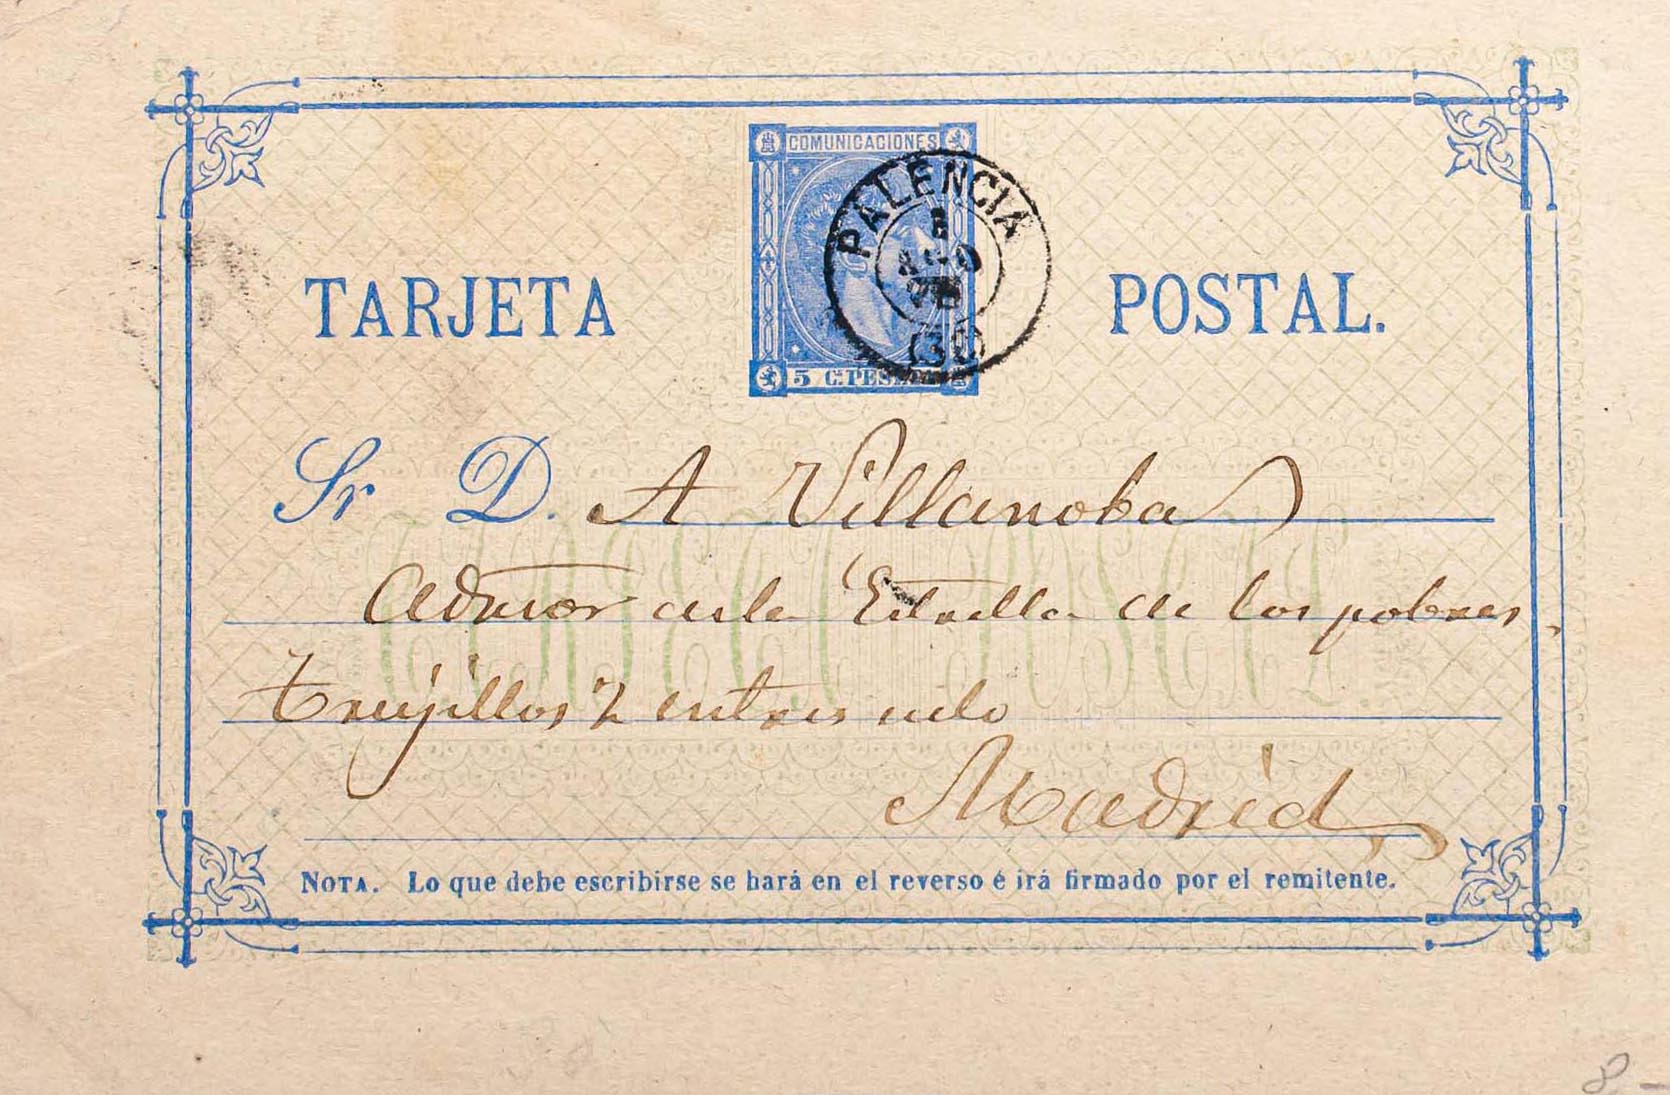 COMUNICACIONES
PALENCIA
AGO
(30)
5 C. PESETA
TARJETA POSTAL.
Sr D. A Villanoba
Admor dela Estrella de los pobres,
trujillos 2 entresuelo
Madrid
NOTA. Lo que debe escribirse se hará en el reverso é irá firmado por el remitente.
8